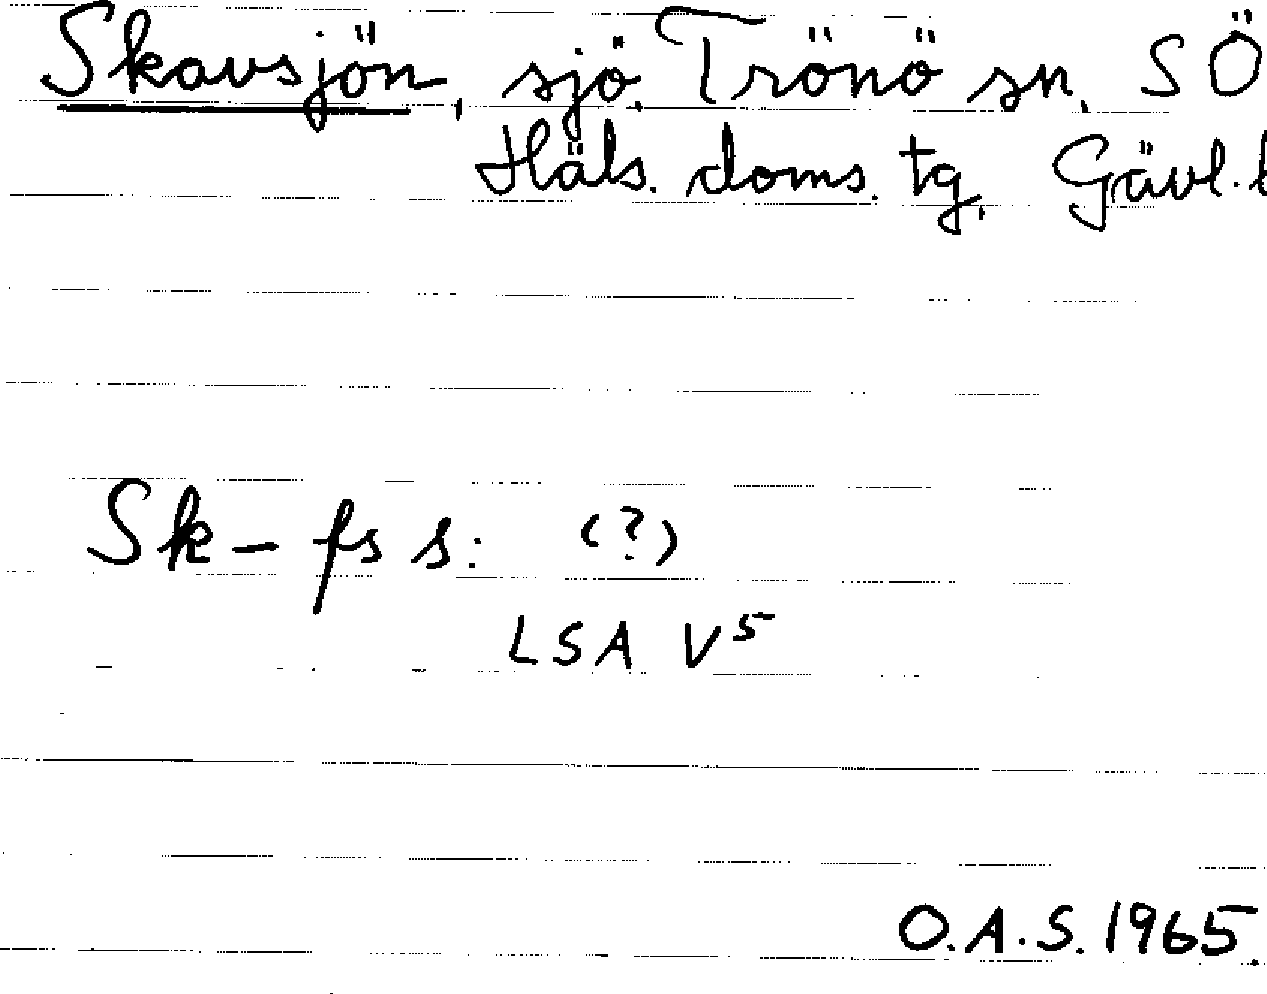 Skavsjön, sjö, Trönö sn, SÖ
Häls. doms. tg, Gävl. l
Sk- fs s: (?)
LSA V5
O.A.S. 1965.